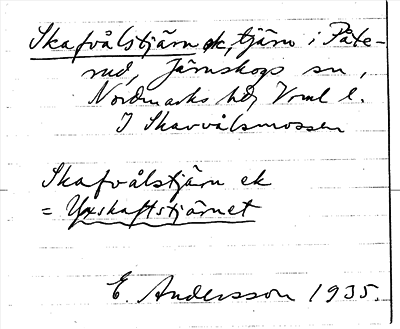 Skafvålstjärn ek, tjärn i Påte-
rud, Järnskogs sn,
Nordmarks hd, Vrml l.
I Skavvålsmossen
Skafvålstjärn ek
= Yxskaftstjärnet
E. Andersson 1935.